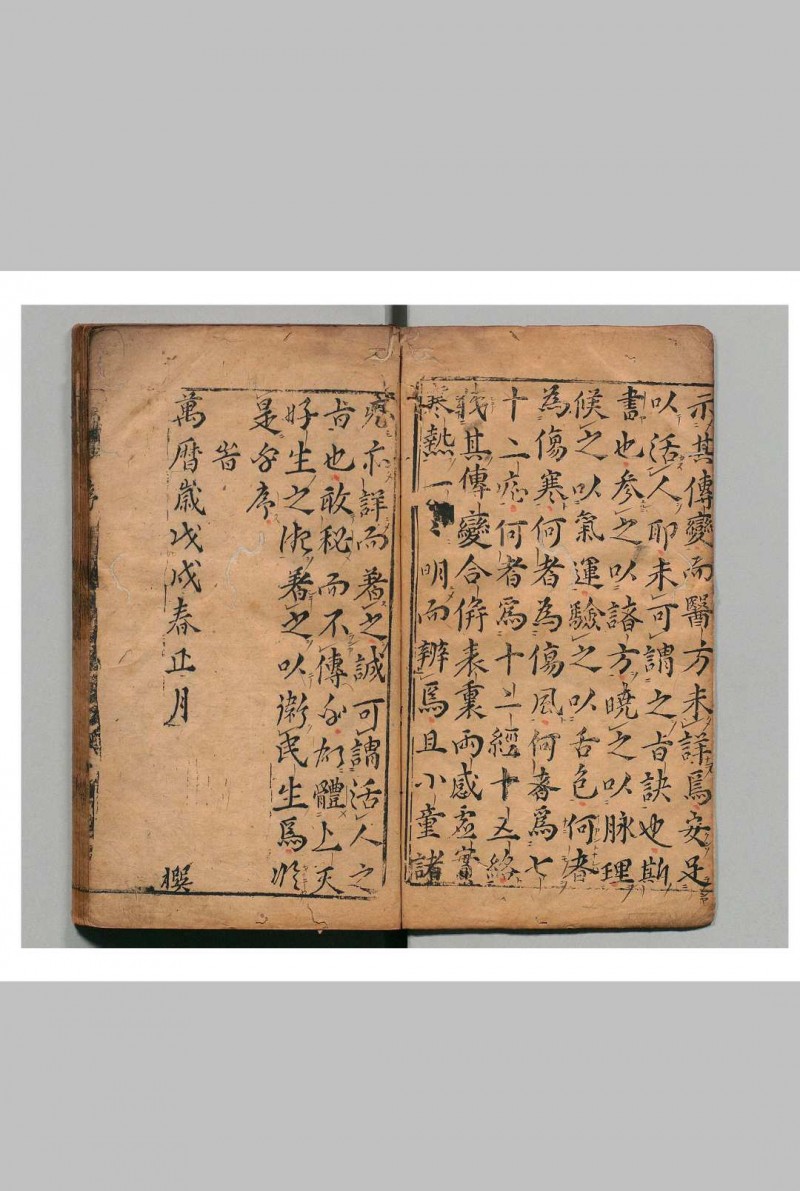 示其傳變而醫方未詳焉安足
以活人耶未可謂之旨訣也斯
書也参之以諸方曉之以脉理
候之以氣運驗之以舌色何者
為傷寒何者為傷風何者爲七
十二症何者爲十二經十五絡
其傳變合併表裏兩感虚實
寒熱一明而辨焉且小童諸
亦詳而著之誠可謂活人之
旨也敢秘而不傳乎体體上天
好生之德著之以衛民生焉
是为序
旹
萬曆嵗戊戌春正月
撰
序